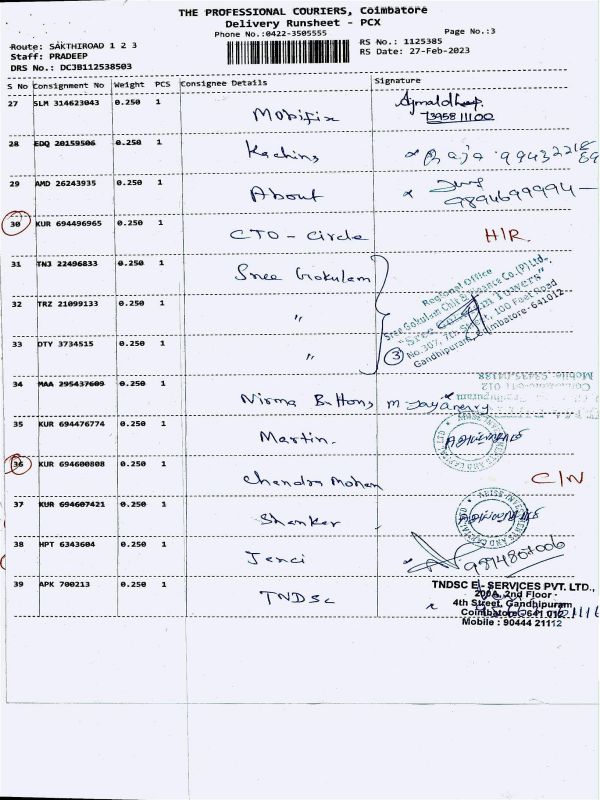 THE PROFESSIONAL COURIERS, Coimbatore
Delivery Runsheet - PCX
Phone No.:0422-3505555
Page No.:3
Route: SAKTHIROAD 1 2 3
Staff: PRADEEP
DRS No.: DCJB112538503
RS No.: 1125385
RS Date: 27-Feb-2023
S No Consignment No Weight PCS Consignee Details Signature
27 SLM 314623043 0.250 1 Mobifix
73958 11100
28 EDQ 20159506 0.250 1 Kaching Raja
29 AMD 26243935 0.250 1 About
9894699994
30 KUR 694496965 0.250 1 CTO - Circle H/R.
31 TNJ 22496833 0.250 1 Sree Gokulam
Regional Office
Sree Gokulam Chit & Finance Co.(P) Ltd.,
"Sree Gokulam Towers"
No.307, 100 Feet Road
Gandhipuram, Coimbatore-641012
32 TRZ 21099133 0.250 1 "
33 DTY 3734515 0.250 1 " 3
34 MAA 295437609 0.250 1 Nirma Buttons
35 KUR 694476774 0.250 1 Martin.
36 KUR 694600808 0.250 1 Chandra Mohan C/N
37 KUR 694607421 0.250 1 Shanker
38 HPT 6343604 0.250 1 Jenci
39 APK 700213 0.250 1 TNDSC
TNDSC E - SERVICES PVT. LTD.,
200A, 2nd Floor
4th Street, Gandhipuram
Coimbatore - 641 012
Mobile : 90444 21112